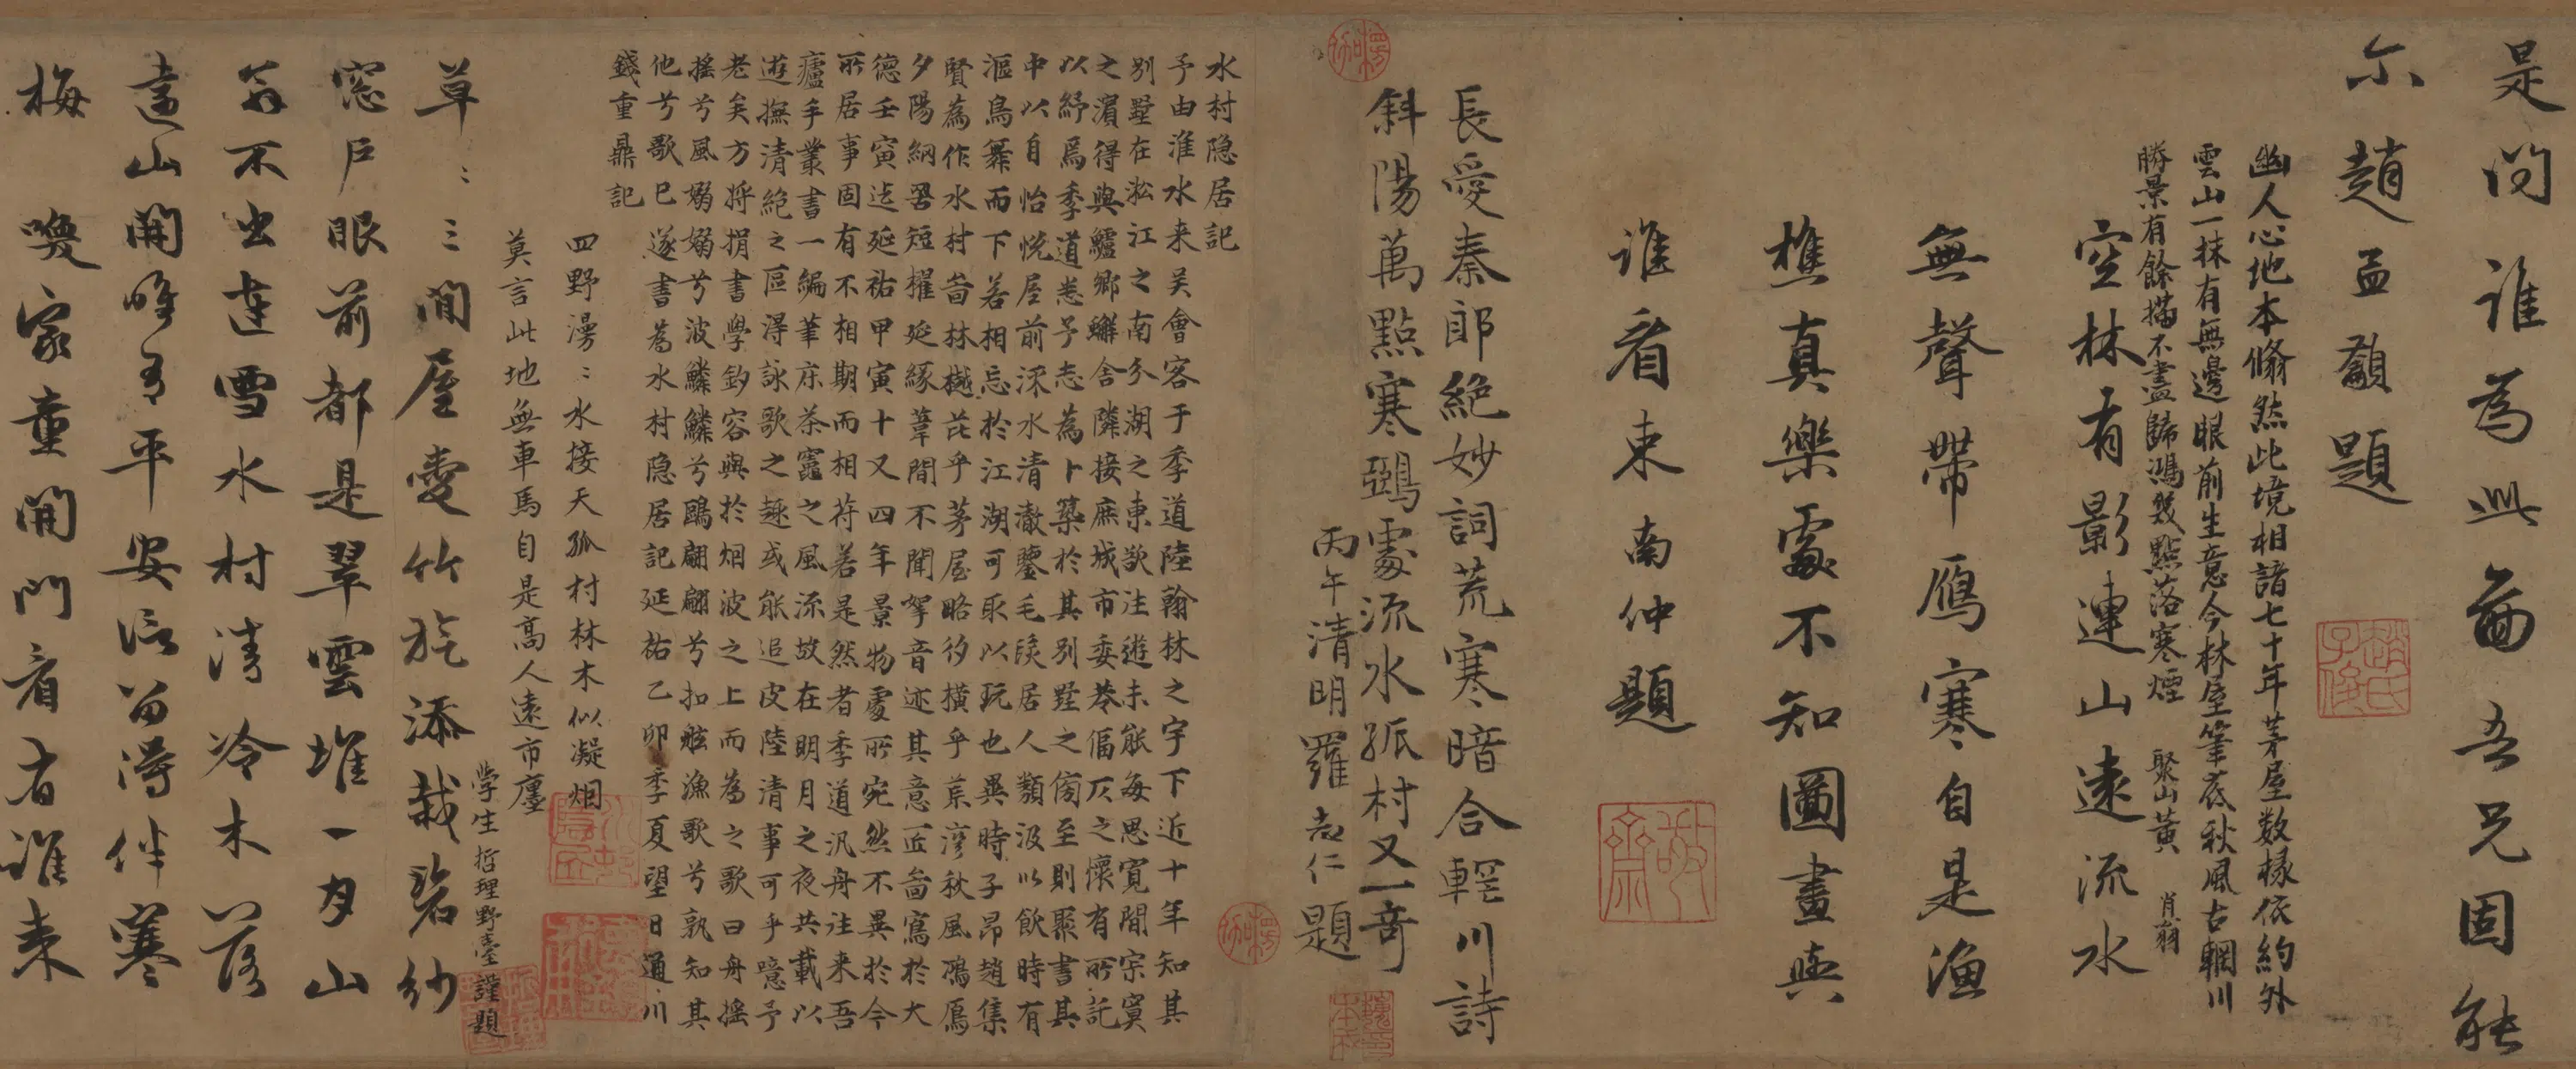 是問誰為此啚吾兄固能
尒趙孟頫題
幽人心地本翛然此境相諳七十年茅屋数椽依約外
雲山一抹有無邊眼前生意今林屋筆底秋風古輞川
勝景有餘描不盡歸鴻幾點落寒煙 聚山黃肖翁
空林有影連山遠流水
無聲帶鴈寒自是漁
樵真樂處不知圖畫與
誰看束南仲題
長愛秦郎絶妙詞荒寒暗合輞川詩
斜陽萬點寒鵶處流水孤村又一奇
丙午清明羅志仁題
水村隱居記
予由淮水来吴會客于季道陸翰林之宇下近十年知其
别墅在淞江之南分湖之東欲往遊未能每思寛閒宗寞
之濵得與鱸鄉蠏舍隣接庶城市委苶偪仄之懷有所託
以紓焉季道恙予志為卜築於其别墅之傍至則聚書其
中以自怡悦屋前深水清澈鑒毛髮居人類汲以飲時有
漚鳥舞而下若相忘於江湖可取以玩也異時子昂趙集
賢為作水村啚林樾茫乎茅屋略彴橫乎荒灣秋風鴻鴈
夕陽網罟短櫂延緣葦間不聞拏音迹其意匠啚寫於大
德壬寅迄延祐甲寅十又四年景物處所宛然不異於今
所居事固有不相期而相符若是然者季道汎舟往来吾
廬手叢書一編筆床茶竈之風流故在明月之夜共載以
遊撫清絶之區淂詠歌之趣或能追皮陸清事可乎噫予
老矣方將捐書學釣容與於烟波之上而為之歌曰舟摇
摇兮風嫋嫋兮波鱗鱗兮鷗翩翩兮扣舷漁歌兮孰知其
他兮歌已遂書為水村隱居記記延祐乙卯季夏望日通川
錢重鼎記
四野漫〻水接天孤村林木似凝烟
莫言此地無車馬自是高人遠市廛
學生哲理野臺謹題
草〻三間屋愛竹旋添栽碧紗
窓戶眼前都是翠雲堆一月山
翁不出連雪水村清冷木落
遠山開唯有平安信留得伴寒
梅 喚家童開門看有誰来